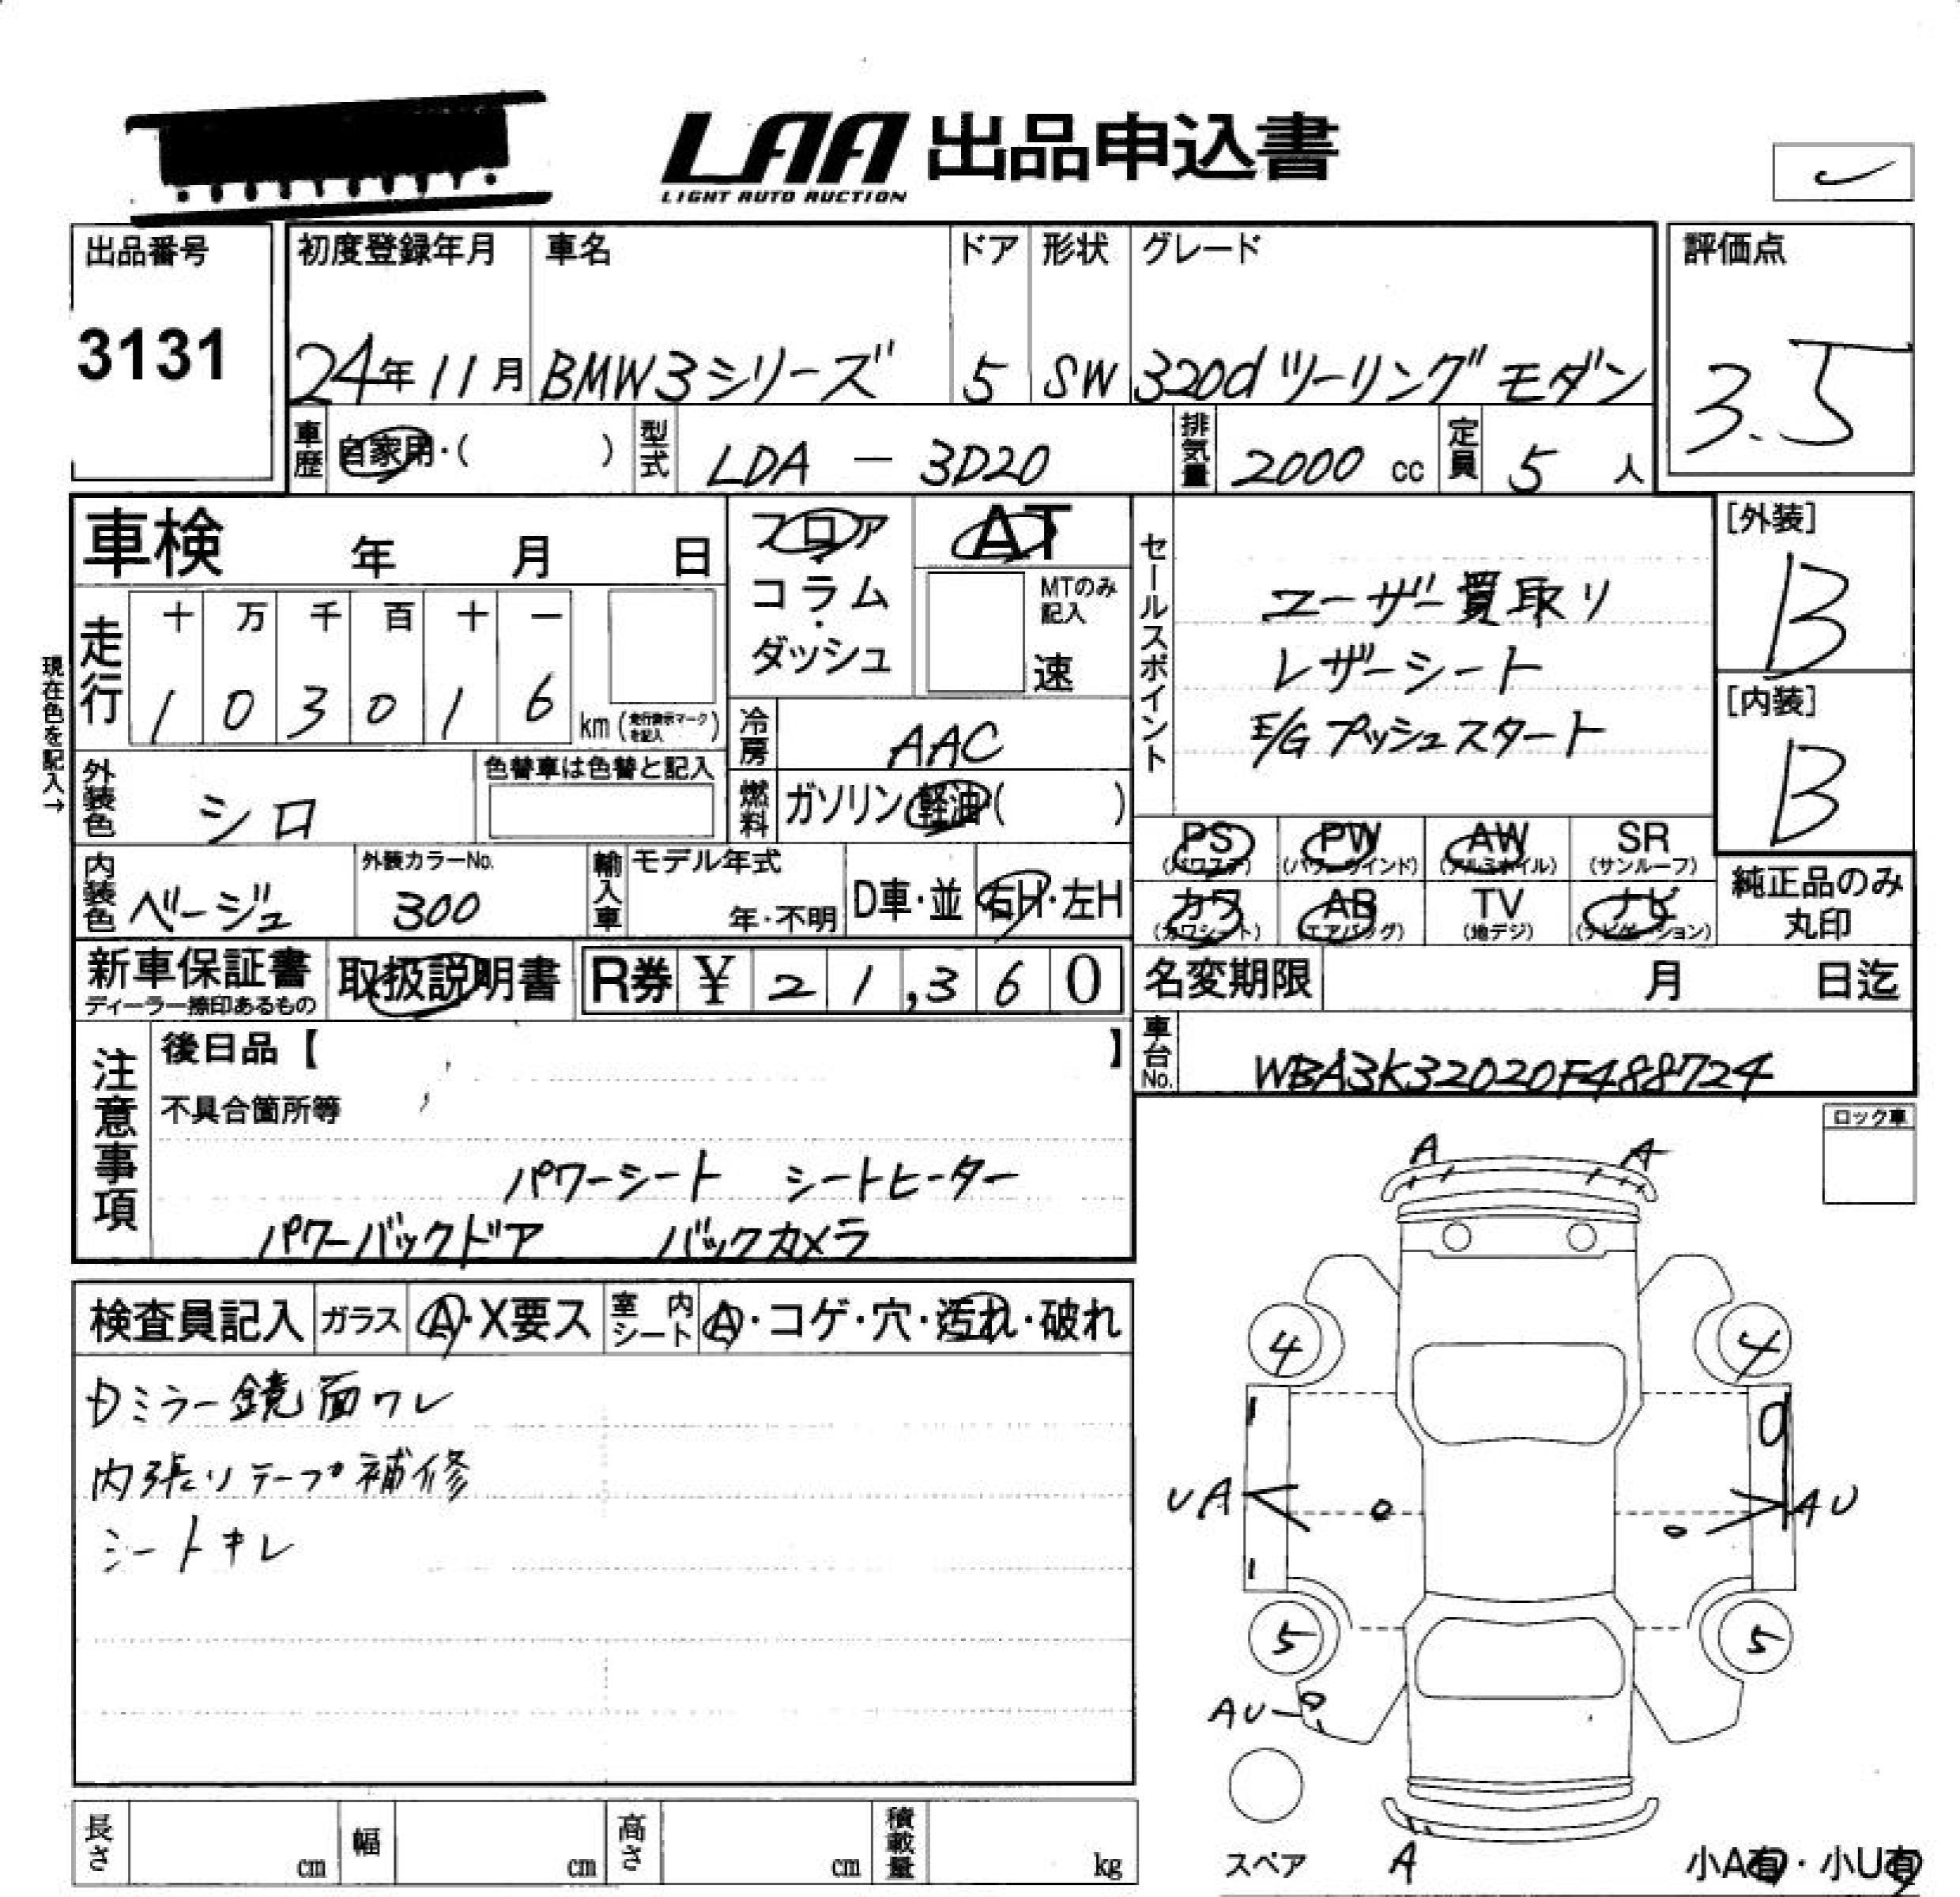 LAA 出品申込書
LIGHT AUTO AUCTION
出品番号
3131
初度登録年月
24年11月
車名
BMW3シリーズ
ドア
5
形状
SW
グレード
320d ツーリング モダン
評価点
3.5
車歴
自家用・( )
型式
LDA － 3D20
排気量
2000 cc
定員
5 人
車検 年 月 日
フロア・コラム・ダッシュ
AT
MTのみ記入
速
現在色を記入→
走行
十 万 千 百 十 一
1 0 3 0 1 6
km (走行表示マークを記入)
冷房
AAC
外装色
シロ
色替車は色替と記入
燃料
ガソリン・軽油・( )
セールスポイント
ユーザー買取り
レザーシート
E/G プッシュスタート
[外装]
B
[内装]
B
PS (パワステ)
PW (パワーウインド)
AW (アルミホイル)
SR (サンルーフ)
カワ (カワシート)
AB (エアバッグ)
TV (地デジ)
ナビ (ナビゲーション)
純正品のみ丸印
内装色
ベージュ
外装カラーNo.
300
輸入車
モデル年式
年・不明
D車・並
右H・左H
新車保証書
ディーラー捺印あるもの
取扱説明書
R券 ¥ 2 1,3 6 0
名変期限 月 日迄
車台No.
WBA3K32020F488724
注意事項
後日品【 】
不具合箇所等
パワーシート シートヒーター
パワーバックドア バックカメラ
ロック車
検査員記入
ガラス
A・X要ス
室内シート
A・コゲ・穴・汚れ・破れ
ミラー鏡面ワレ
内張りテープ補修
シートキレ
A A
4 4
UA AU
5 5
AU
スペア
A
小A有・小U有
長さ cm
幅 cm
高さ cm
積載量 kg